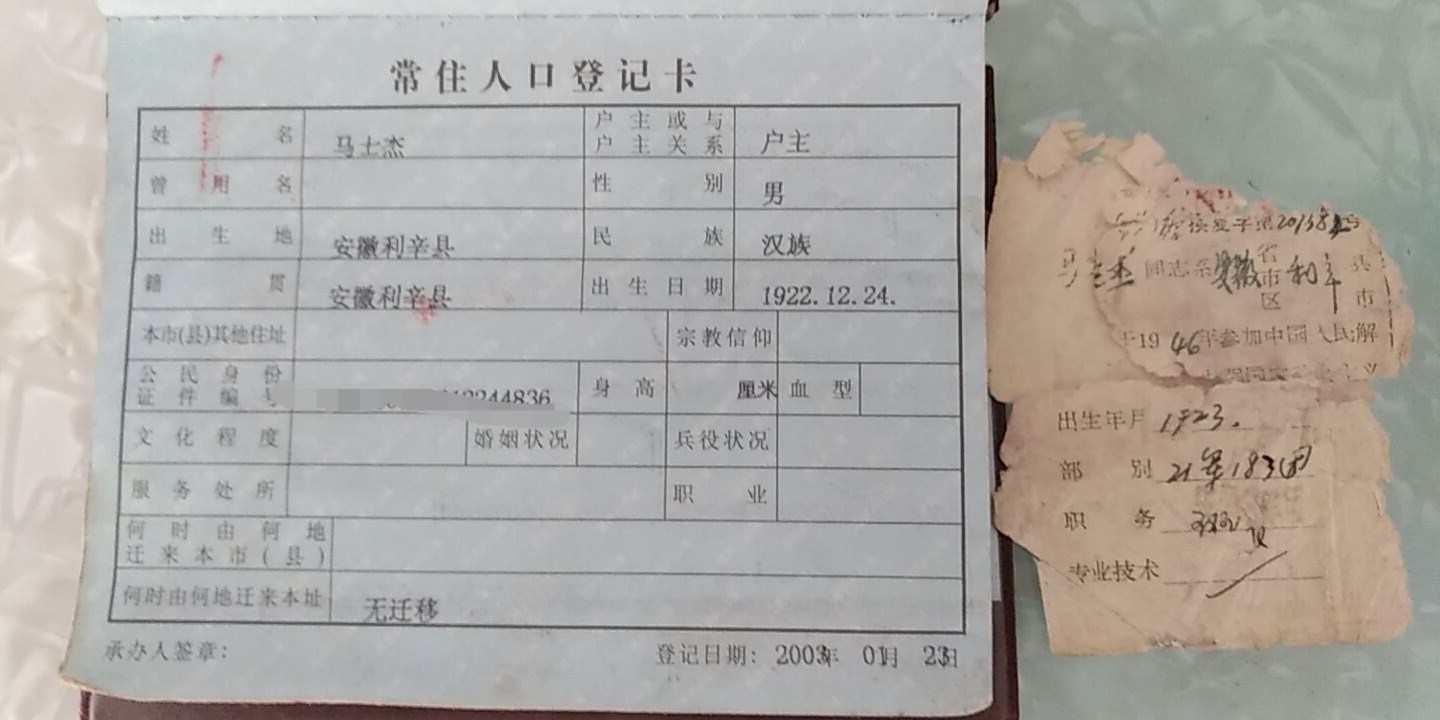 常住人口登记卡
姓名 马士杰 户主或与户主关系 户主
曾用名 性别 男
出生地 安徽利辛县 民族 汉族
籍贯 安徽利辛县 出生日期 1922.12.24.
本市(县)其他住址 宗教信仰
公民身份证件编号 2244836 身高 厘米 血型
文化程度 婚姻状况 兵役状况
服务处所 职业
何时由何地迁来本市(县)
何时由何地迁来本址 无迁移
承办人签章: 登记日期: 2003年 01月 23日
字第
马士杰 同志系 安徽 省市区 利辛 县市
于1946年参加中国人民解
出生年月 1923.
部别 21军183团
职务
专业技术